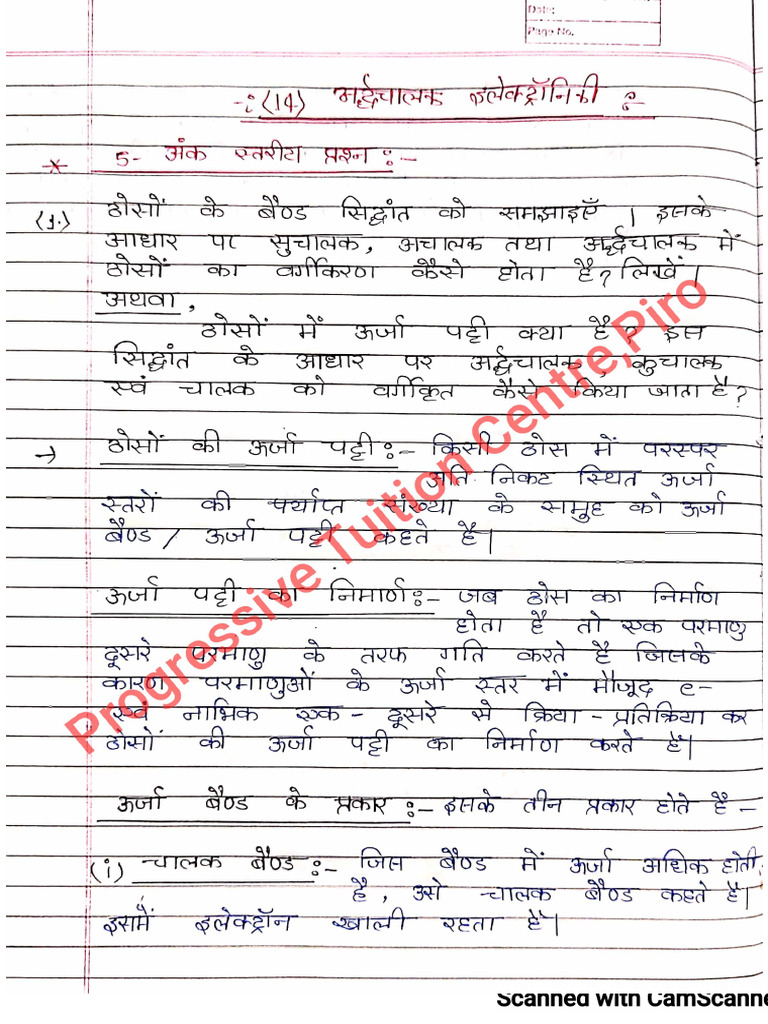 Date:
Page No.
-:(14) अर्द्धचालक इलेक्ट्रॉनिकी :-
* 5- अंक स्तरीय प्रश्न :-
(1.) ठोसों के बैण्ड सिद्धांत को समझाइएँ । इसके
आधार पर सुचालक, अचालक तथा अर्द्धचालक में
ठोसों का वर्गीकरण कैसे होता है? लिखें।
अथवा,
ठोसों में ऊर्जा पट्टी क्या है ? इस
सिद्धांत के आधार पर अर्द्धचालक, कुचालक
एवं चालक को वर्गीकृत कैसे किया जाता है?
→ ठोसों की ऊर्जा पट्टी :- किसी ठोस में परस्पर
अति निकट स्थित ऊर्जा
स्तरों की पर्याप्त संख्या के समुह को ऊर्जा
बैण्ड / ऊर्जा पट्टी कहते है।
ऊर्जा पट्टी का निर्माण :- जब ठोस का निर्माण
होता है तो एक परमाणु
दूसरे परमाणु के तरफ गति करते है जिसके
कारण परमाणुओं के ऊर्जा स्तर में मौजूद e-
एवं नाभिक एक - दूसरे से क्रिया - प्रतिक्रिया कर
ठोसों की ऊर्जा पट्टी का निर्माण करते हैं।
ऊर्जा बैण्ड के प्रकार :- इसके तीन प्रकार होते है -
(i) चालक बैण्ड :- जिस बैण्ड में ऊर्जा अधिक होती
है, उसे चालक बैण्ड कहते है।
इसमें इलेक्ट्रॉन खाली रहता है।
Progressive Tuition Centre,Piro
Scanned with CamScanne